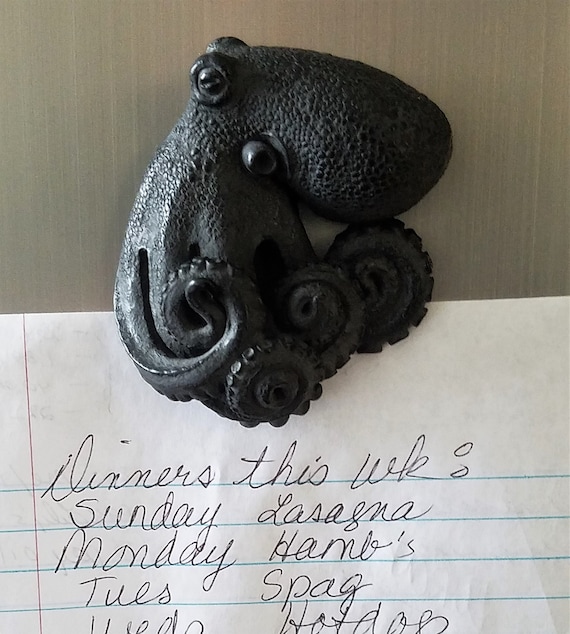 Dinners this wk:
Sunday Lasagna
Monday Hamb's
Tues Spag
Weds Hotdogs